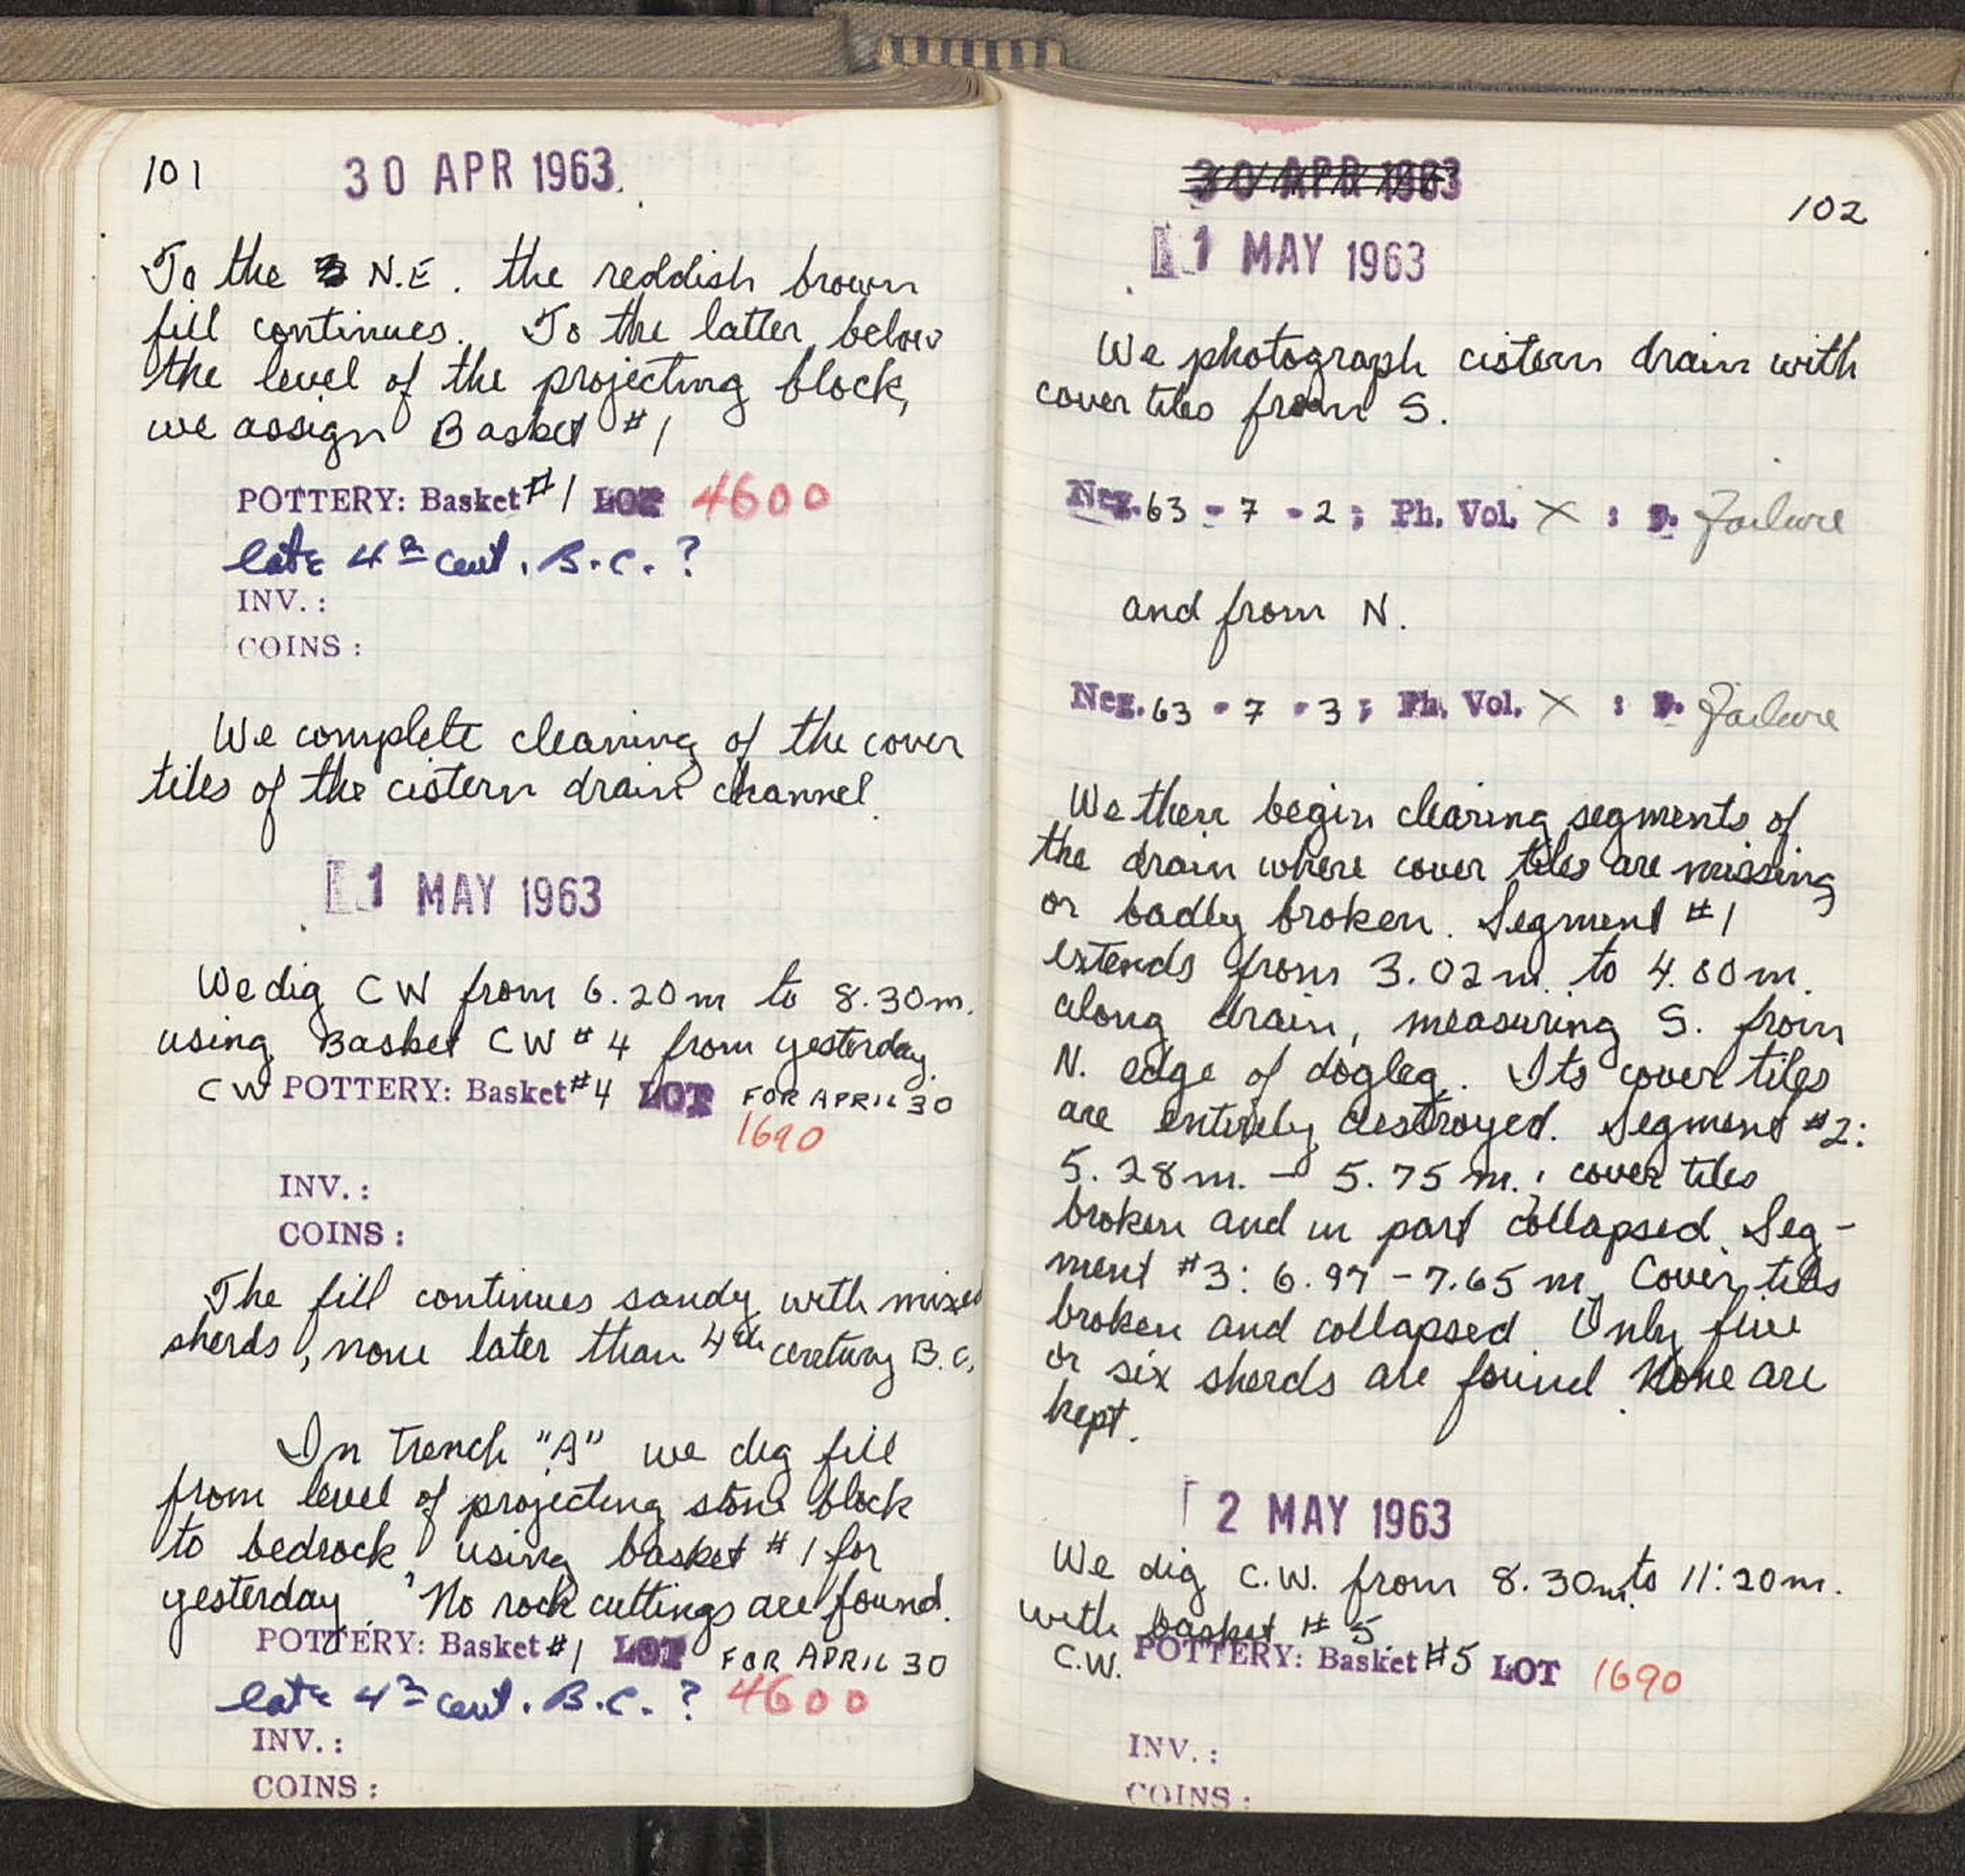 101
30 APR 1963
To the N.E. the reddish brown
fill continues. To the latter, below
the level of the projecting block,
we assign Basket #1
POTTERY: Basket #1 LOT 4600
late 4th cent. B.C.?
INV.:
COINS:
We complete cleaning of the cover
tiles of the cistern drain channel.
1 MAY 1963
We dig CW from 6.20m to 8.30m.
using Basket CW #4 from yesterday.
CW POTTERY: Basket #4 LOT FOR APRIL 30
1690
INV.:
COINS:
The fill continues sandy with mixed
sherds, none later than 4th century B.C.
In Trench "A" we dig fill
from level of projecting stone block
to bedrock, using basket #1 for
yesterday. No rock cuttings are found.
POTTERY: Basket #1 LOT FOR APRIL 30
late 4th cent. B.C.? 4600
INV.:
COINS:
30 APR 1963
102
1 MAY 1963
We photograph cistern drain with
cover tiles from S.
Neg. 63 - 7 - 2; Ph. Vol. X : p. Failure
and from N.
Neg. 63 - 7 - 3; Ph. Vol. X : p. Failure
We then begin clearing segments of
the drain where cover tiles are missing
or badly broken. Segment #1
extends from 3.02m. to 4.00m.
along drain, measuring S. from
N. edge of dogleg. Its cover tiles
are entirely destroyed. Segment #2:
5.28m. - 5.75m.; cover tiles
broken and in part collapsed. Seg-
ment #3: 6.97 - 7.65m. Cover tiles
broken and collapsed. Only five
or six sherds are found. None are
kept.
2 MAY 1963
We dig C.W. from 8.30m. to 11:20m.
with basket #5.
C.W. POTTERY: Basket #5 LOT 1690
INV.:
COINS: